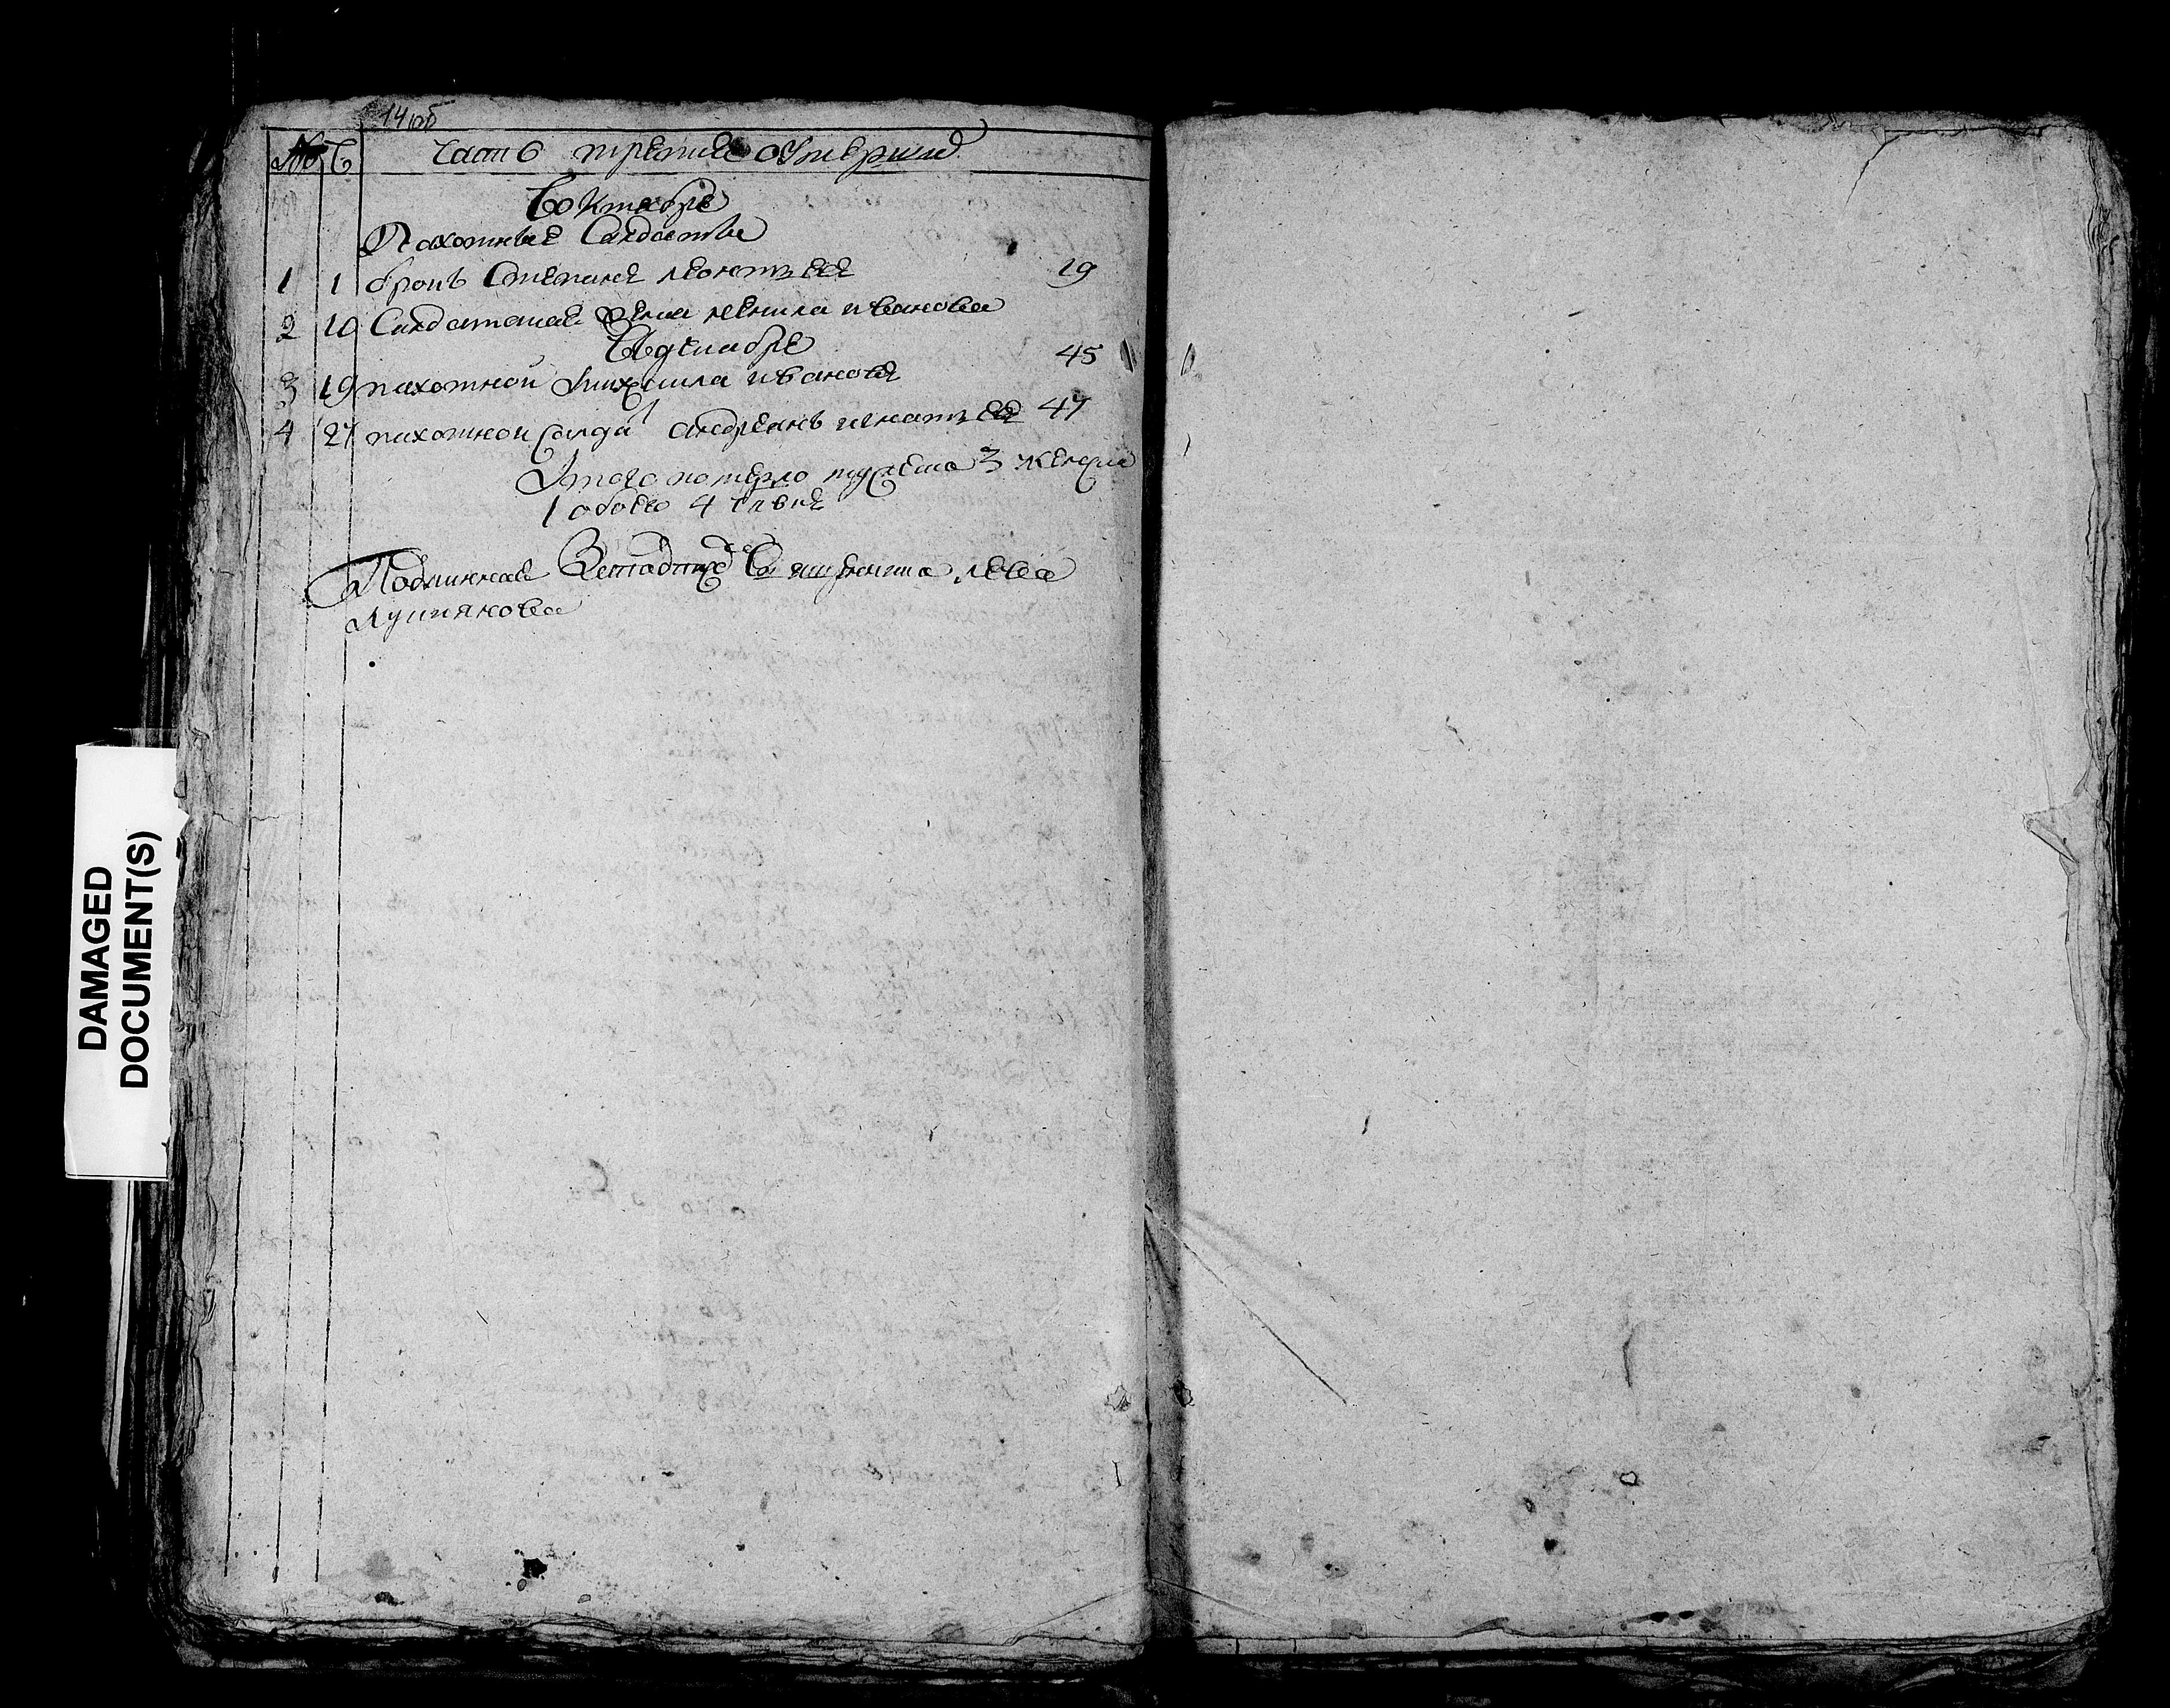 14 об
№ Ч Часть третия оумерших
Воктябре
Пахотные Салдаты
1 1 Степанъ леонтьев 19
2 10 Салдатская жена ивановa
Вдекабре
3 19 пахотной михаила иванов 45
4 27 пахотной салда андреанъ игнатьев 47
Итого померло мужеска 3 женска
1 обоего 4 члвкъ
Подлинная Священника лва
лукиянова
DAMAGED
DOCUMENT(S)